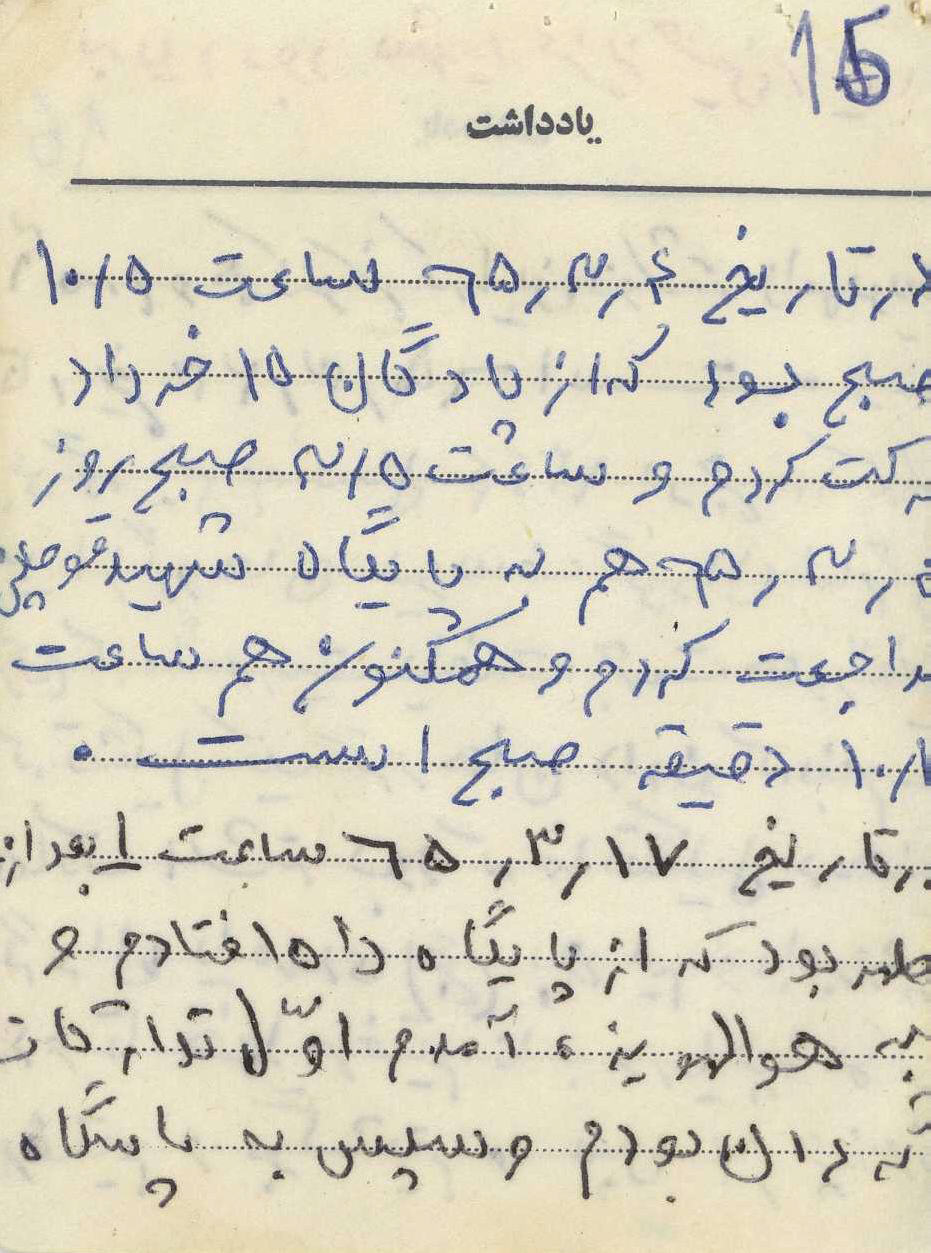 15
یادداشت
در تاریخ ۶ر۳ر۶۵ ساعت ۱۰/۵
صبح بود که از پادگان ۱۵ خرداد
کت کردم و ساعت ۳/۵ صبح روز
ر۳ر۶۵ هم به پایگاه شهید
مراجعت کردم و هم‌کنون هم ساعت
دقیقه صبح است.
در تاریخ ۱۷ر۳ر۶۵ ساعت ۱ بعد از
ظهر بود که از پایگاه راه افتادم و
به آمدم اوّل تدارکات
گردان بودم و سپس به پایگاه